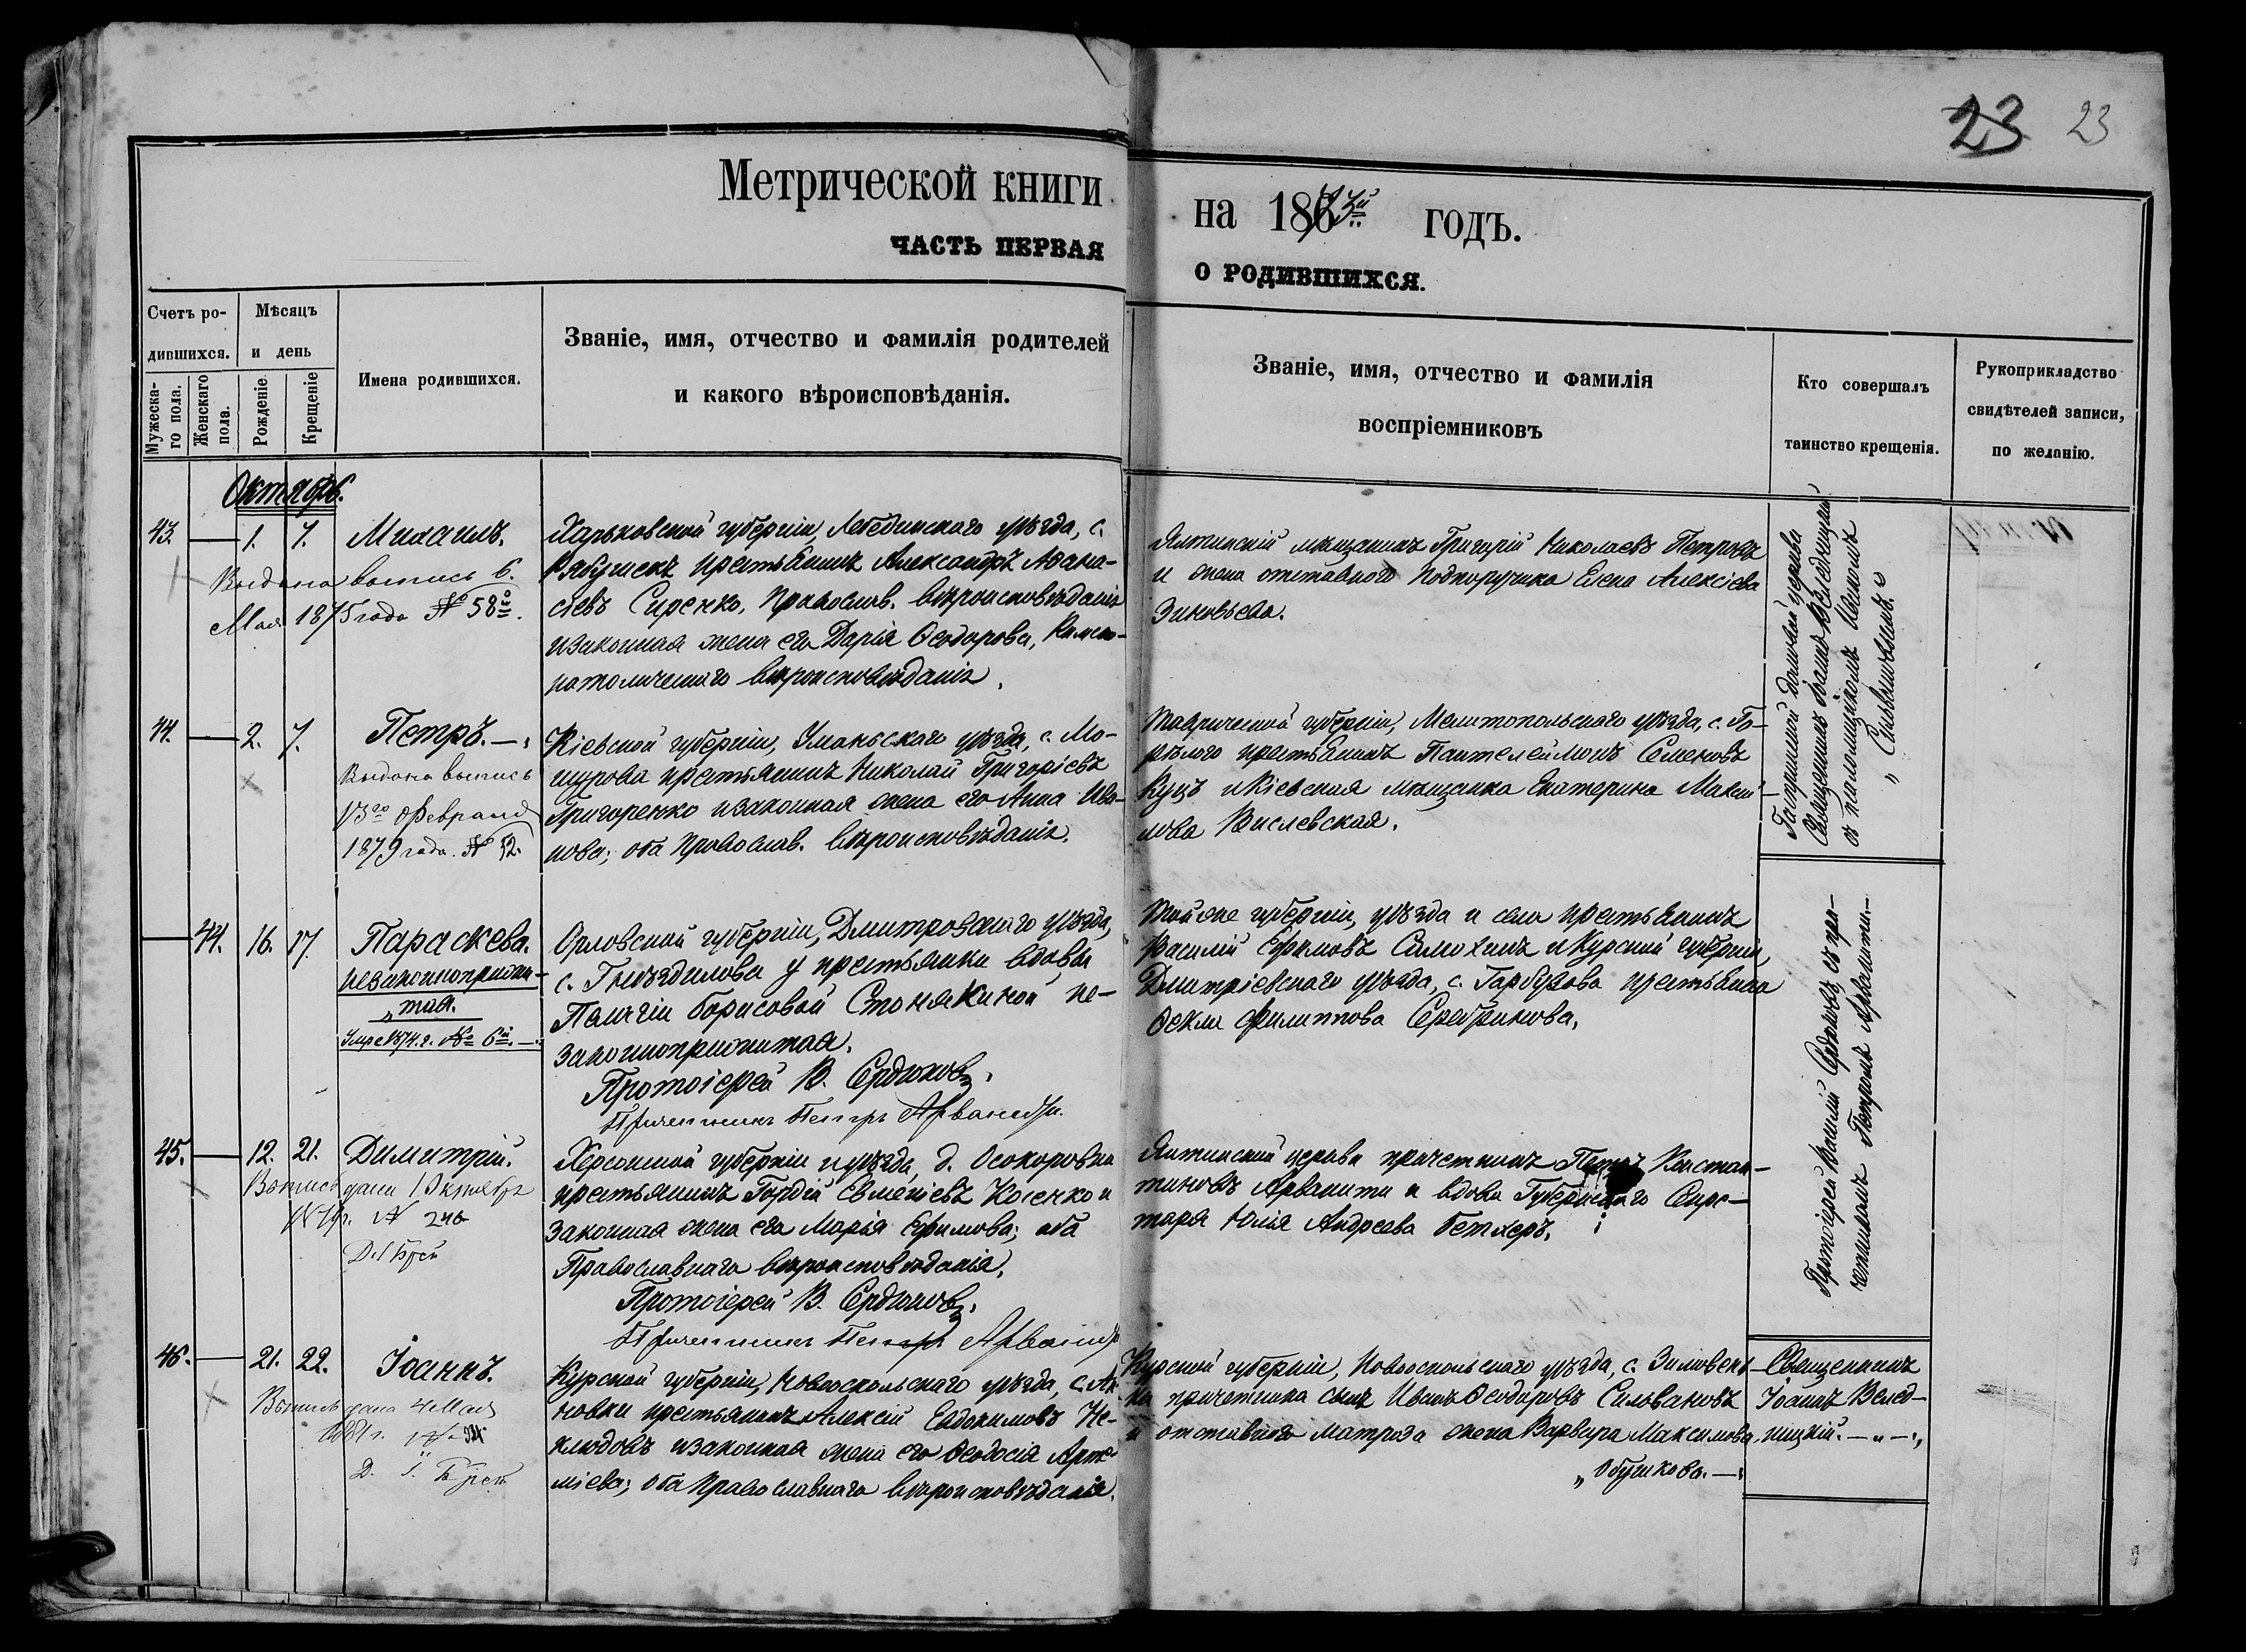 23 23
Метрической книги на 1873й годъ.
ЧАСТЬ ПЕРВАЯ О РОДИВШИХСЯ.
Счетъ ро-
дившихся.
Мужеска-
го пола.
Женскаго
пола.
Мѣсяцъ
и день
Рожденіе.
Крещеніе
Имена родившихся.
Званіе, имя, отчество и фамилія родителей
и какого вѣроисповѣданія.
Званіе, имя, отчество и фамилія
воспріемниковъ
Кто совершалъ
таинство крещенія.
Рукоприкладство
свидѣтелей записи,
по желанію.
Октябрь.
43. 1. 7. Михаилъ.
Выдана выпись 6.
Мая 1875 года № 58й.
Харьковской губерніи, Лебединскаго уѣзда, с.
Рябушекъ крестьянинъ Александръ Аѳана-
сіевъ Сиренко, Православ. вѣроисповѣданія
и законная жена его Дарія Ѳеодорова, Римско-
католическаго вѣроисповѣданія.
Ялтинскій мѣщанинъ Григорій Николаевъ Петровъ
и жена отставного Подпоручика Елена Алексіева
Зиновьева.
44. 2. 7. Петръ.
Выдана выпись
13го Февраля
1879 года. № 52.
Кіевской губерніи, Уманьскаго уѣзда, с. Мо-
шурова крестьянинъ Николай Григоріевъ
Григоренко и законная жена его Анна Ива-
нова; оба Православ. вѣроисповѣданія.
Таврической губерніи, Мелитопольскаго уѣзда, с. Го-
рѣлого крестьянинъ Пантелеймонъ Семеновъ
Куцъ и Кіевская мѣщанка Екатерина Макси-
мова Вислевская.
Гаспринской домовой церкви
Священникъ Іоаннъ
съ псаломщикомъ Иваномъ
„ Сильвановымъ. „
44. 16. 17. Параскева.
незаконноприжи-
„ тая.
Умре 1874. г. № 6й.
Орловской губерніи, Дмитровскаго уѣзда,
с. Гнѣздилова у крестьянки вдовы
Пелагіи Борисовой Стонякиной не-
законноприжитая.
Протоіерей В. Сердюковъ.
Причетникъ Петръ Арванити.
Той же губерніи, уѣзда и села крестьянинъ
Василій Ефимовъ Самохинъ и Курской губерніи,
Дмитріевскаго уѣзда, с. Гарбузова крестьянка
Ѳекла Филиппова Серебрякова.
Протоіерей Василій Сердюковъ, съ при-
четникомъ Петромъ Арванити.
45. 12. 21. Димитрій.
Выпись дана 1 Октября
№ 246
Херсонской губерніи и уѣзда, д. Осокоровки
крестьянинъ Гордій Евменіевъ Косенко и
законная жена его Марія Ефимова; оба
Православнаго вѣроисповѣданія.
Протоіерей В. Сердюковъ.
Причетникъ Петръ Арванити
Ялтинской церкви причетникъ Петръ Констан-
тиновъ Арванити и вдова Губернскаго Секре-
таря Юлія Андреева Бетлеръ.
46. 21. 22. Іоаннъ.
Выпись дана 4 Мая
Курской губерніи, Новооскольскаго уѣзда,
новки крестьянинъ Алексій Евдокимовъ Не-
клюдовъ и законная жена его Ѳеодосія Арте-
міева; оба Православнаго вѣроисповѣданія.
Курской губерніи, Новооскольскаго уѣзда, с. Зимовень-
ки причетника сынъ Иванъ Ѳеодоровъ Сильвановъ
и отставного матроза жена Варвара Максимова
„ Обучкова.
Священникъ
Іоаннъ